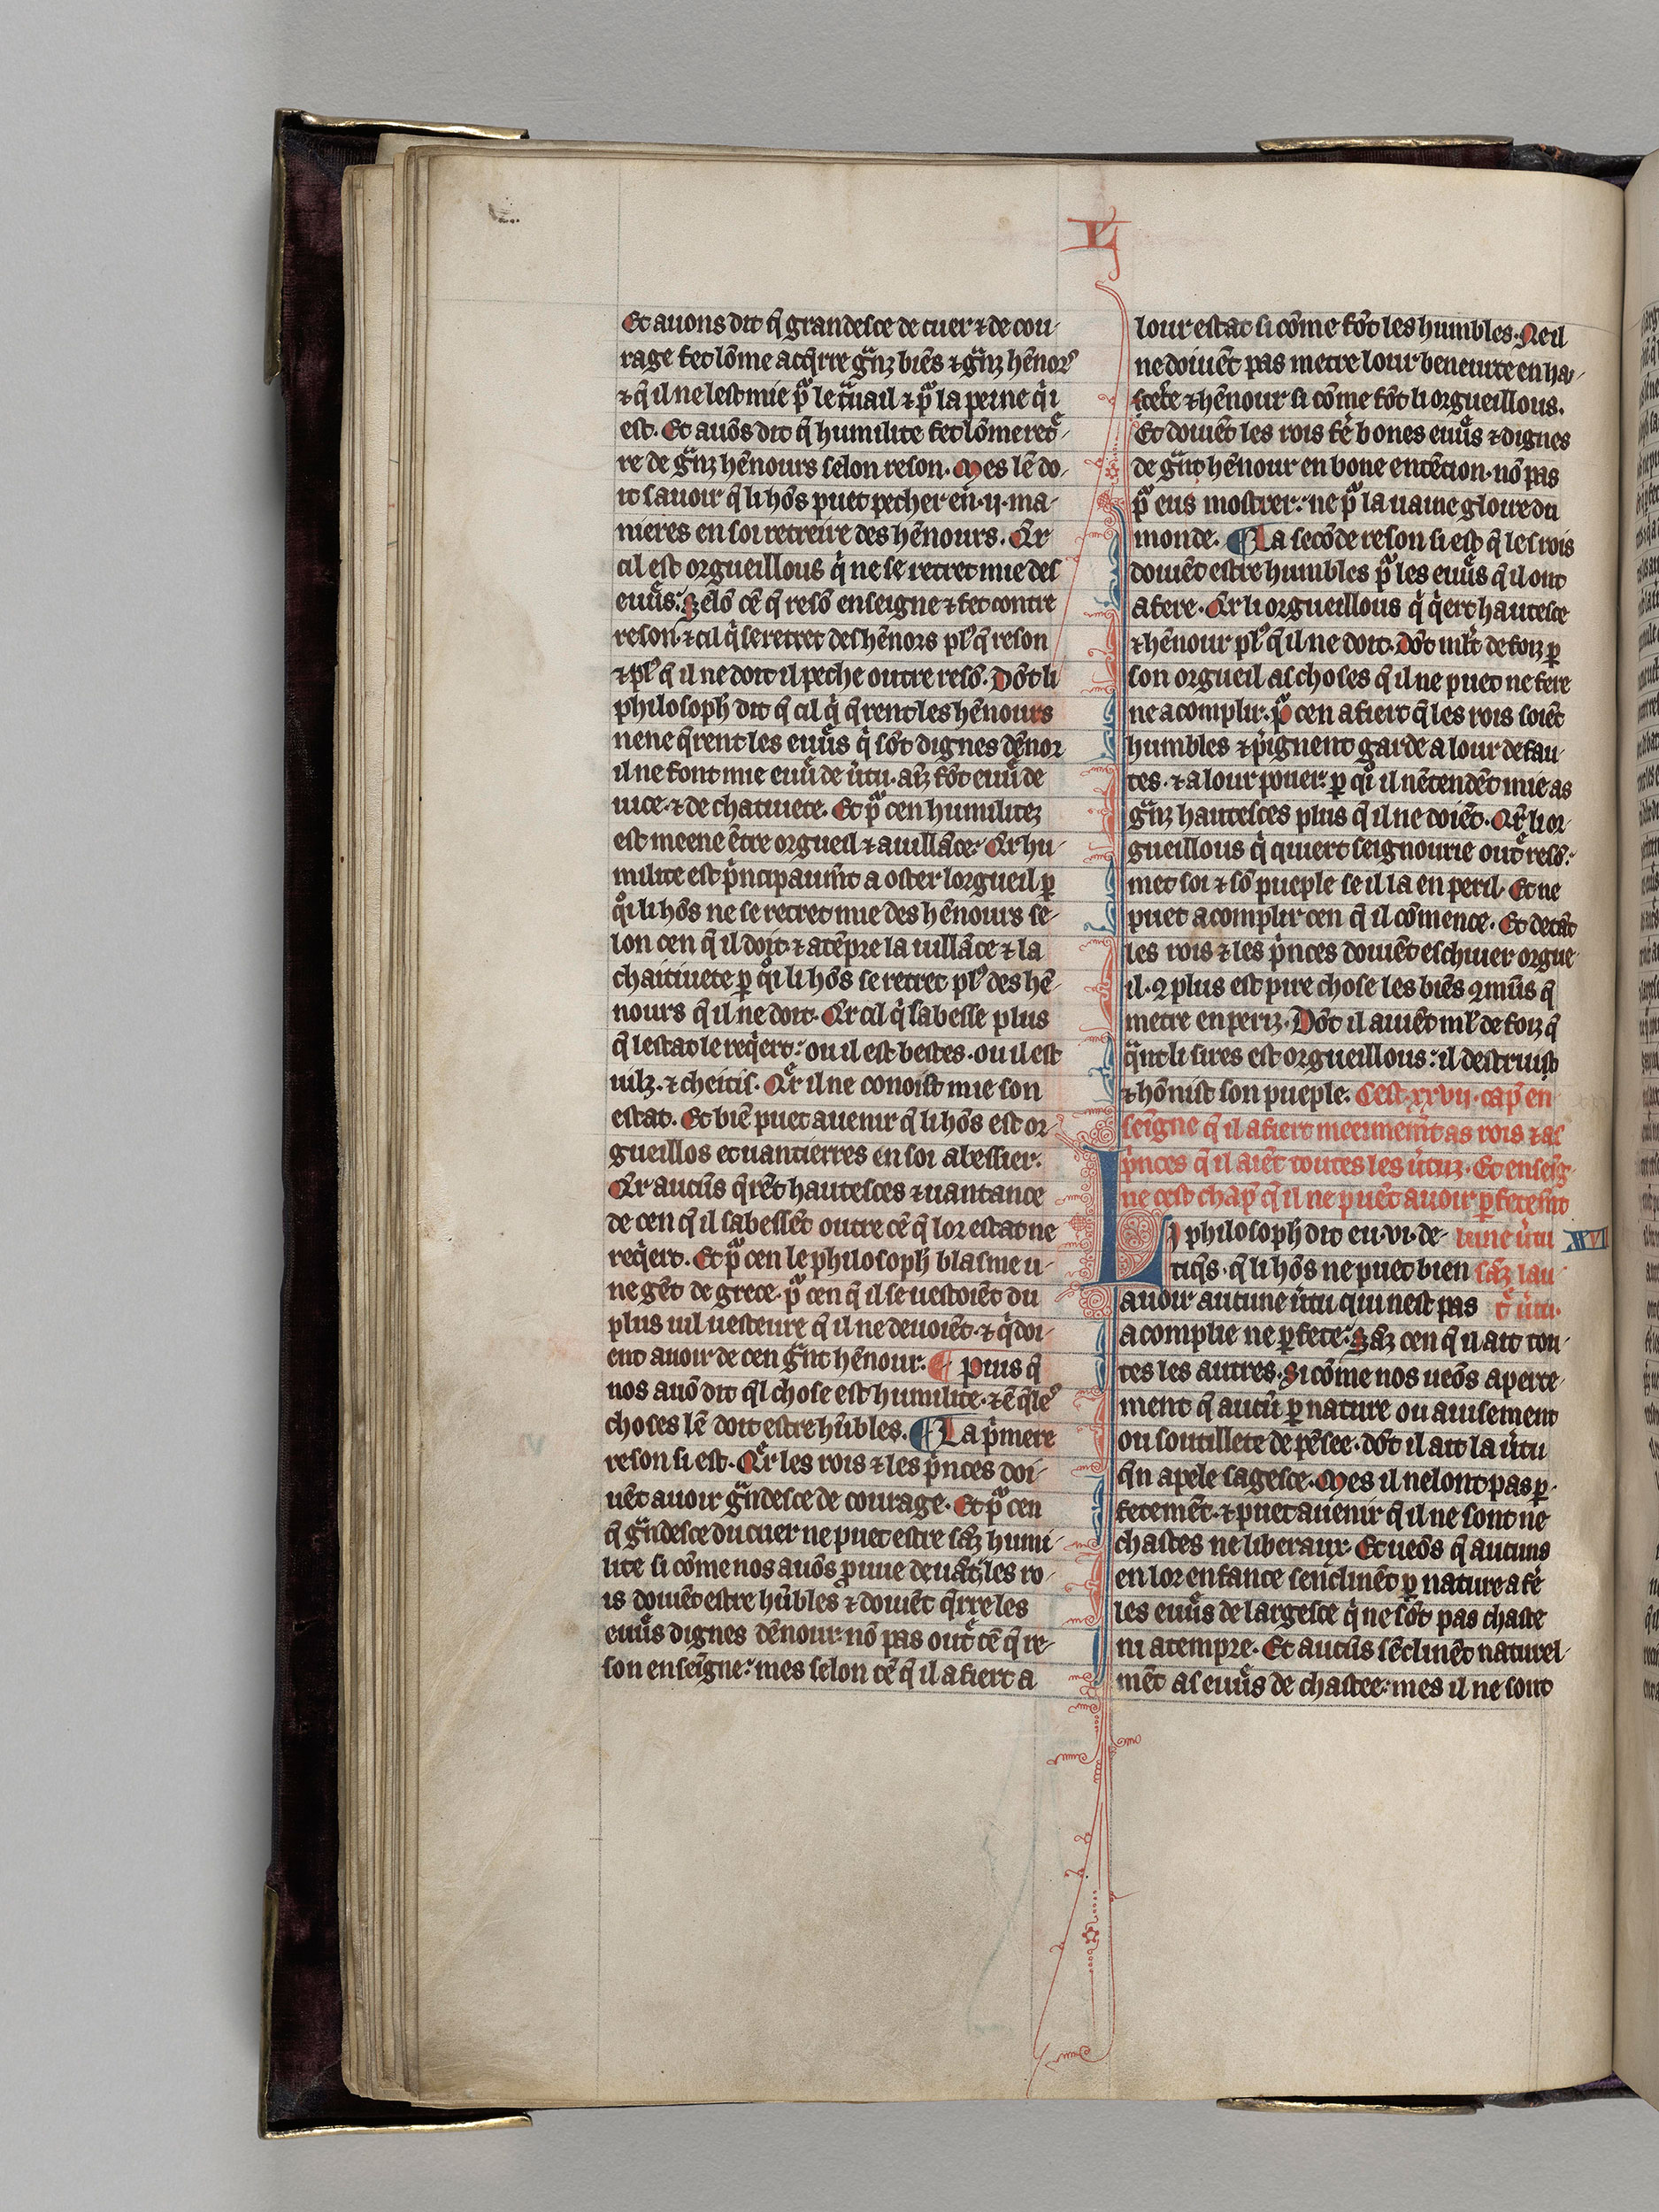 L
Et auons dit q̄ grandesce de cuer ⁊ de cou-
rage fet lōme acq̄rre gͣnz biēs ⁊ gͣnz hēnorˢ
⁊ q̄ il ne lest mie pͣ le tͣuail ⁊ pͣ la peine qͥ i
est. Et auōs dit q̄ humilite fet lōme retͤ-
re de gͣnz hēnours selon reson. Mes lē do-
it sauoir q̄ li hōs puet pecher en .ij. ma-
nieres en soi retreire des hēnours. Qr
cil est orgueillous qͥ ne se retret mie des
euuͤs. Selō cē q̄ resō enseigne ⁊ fet contre
reson. ⁊ cil qͥ se retret des hēnors plꝰ q̄ reson
⁊ plꝰ q̄ il ne doit il peche outre resō. Dōt li
philosoph dit q̄ cil qͥ q̄rent les hēnours
ne ne q̄rent les euuͤs qͥ sōt dignes dēnor
il ne font mie euuͤ de ũtu. aīz fōt euuͤ de
uice. ⁊ de chatiuete. Et pͣ cen humilitez
est meene ētre orgueil ⁊ auillāce. Qr hu-
milite est pͥncipaumt̄ a oster lorgueil ꝑ
qͦi li hōs ne se retret mie des hēnours se-
lon cen q̄ il doit. ⁊ atēpre la uillāce ⁊ la
chaitiuete ꝑ qͦi li hōs se retret plꝰ des hē-
nours q̄ il ne doit. Qr cil qͥ sabesse plus
q̄ lestat le reqͥert. ou il est bestes. ou il est
uilz. ⁊ cheitis. Qͤr il ne conoist mie son
estat. Et biē puet auenir q̄ li hōs est or-
gueillos et uantierres en soi abessier.
Qr aucūs q̄rēt hautesces ⁊ uantance
de cen q̄ il sabessēt outre cē q̄ lor estat ne
reqͥert. Et pͣ cen le philosoph blasme u-
ne gēt de grece. pͣ cen q̄ il se uestoiēt du
plus uil uesteure q̄ il ne deuoiēt. ⁊ q̄doi-
ent auoir de cen gͣnt hēnour. ¶ Puis q̄
nos auō dit q̄l chose est humilite. ⁊ ē q̄leˢ
choses lē doit estre hūbles. ¶ La pͥmere
reson si est. Qͤr les rois ⁊ les pͥnces doi-
uēt auoir gͣndesce de courage. Et pͣ cen
q̄ gͣndesce du cuer ne puet estre sāz humi-
lite si cōme nos auōs ꝓuue deuāt. les ro-
is doiuēt estre hūbles ⁊ doiuēt q̄rre les
euuͤs dignes dēnour. nō pas outͤ cē q̄ re-
son enseīgne. mes selon cē q̄ il afiert a
lour estat si cōme fōt les humbles. Ne il
ne doiuēt pas metre lour beneurte en ha-
⁊ hēnour si cōme fōt li orgueillous.
Et doiuēt les rois fē bones euuͤs ⁊ dignes
de gͣnt hēnour en bone entētion. nō pas
pͣ eus mostrer. ne pͣ la uaine gloire du
monde. ¶ La secōde reson si est q̄ les rois
doiuēt estre humbles pͣ les euuͤs q̄ il ont
a fere. Qr li orgueillous qͥ qͥert hautesce
⁊ hēnour plꝰ q̄ il ne doit. Dōt mlt̄ de foiz ꝑ
son orgueil as choses q̄ il ne puet ne fere
ne acomplir. pͣ cen afiert q̄ les rois soiēt
humbles ⁊ pͥgnent garde a lour defau-
tes. ⁊ a lour pouer. ꝑ qͦi il nētendēt mie as
gͣnz hautesces plus q̄ il ne doiēt. Qͤr li or-
gueillous qͥ quiert seignourie outͤ resō.
met soi ⁊ sō pueple se il la en peril. Et ne
puet acomplir cen q̄ il cōmence. Et de tāt
les rois ⁊ les pͥnces doiuēt eschiuer orgue-
il. ꝯ plus est pire chose les biēs ꝯmūs q̄
metre en periz. Dōt il auiēt ml̄t de foiz q̄
qͣnt li sires est orgueillous. il destruist
⁊ hōnist son pueple. Cest .xxvij. cap̄ en
seīgne q̄ il afiert meemement as rois ⁊ as
pͥnces q̄ il aiēt toutes les ũtuz. Et enseīg-
ne cest chap̄ q̄ il ne puēt auoir ꝑfetemēt
Li philosoph dit eu .vi. de- tune ũtu XVI
tiq̄s. q̄ li hōs ne puet bien sāz lau
auoir aucune ũtu qui nest pas tͤ ũtu.
acomplie ne ꝑfete. Sāz cen q̄ il ait tou-
tes les autres. Si cōme nos ueōs aperte-
ment q̄ aucū ꝑ nature ou auisement
ou soutillete de pēsee. dōt il ait la ũtu
q̄n apele sagesce. Mes il nelont pas ꝑ-
fetemēt. ⁊ puet auenir q̄ il ne sont ne
chastes ne liberaux. Et ueōs q̄ aucuns
en lor enfance senclinēt ꝑ nature a fē
les euuͤs de largesce qͥ ne sōt pas chaste
ni atempre. Et aucūs sēclinēt naturel-
mēt as euuͤs de chastee. mes il ne sont